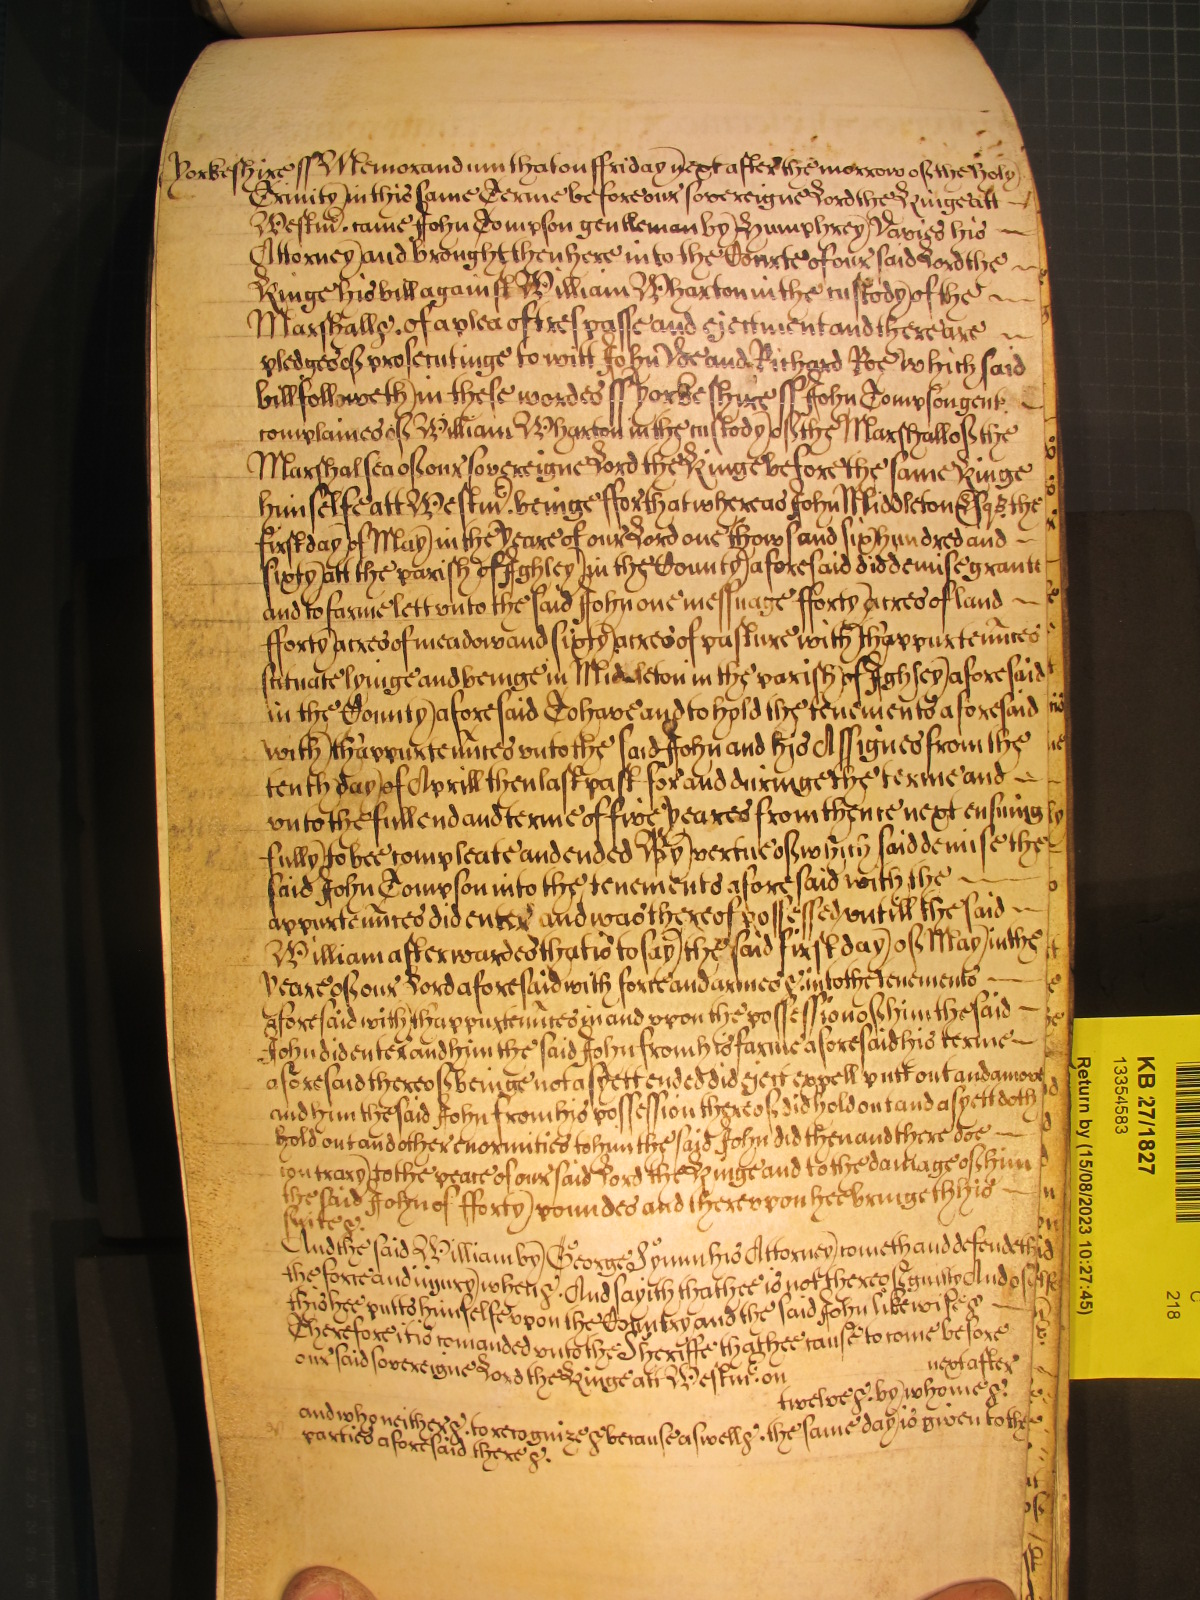 Yorkeshire ss Memorandum that on ffriday next after the morrow of the holy
Trinity in this same Terme before our sovereigne Lord the Kinge att
Westm̃. came John Tompson gentleman by Humphrey Davies his
Attorney and brought then here into the Courte of our said Lord the
Kinge his bill against William Wharton in the custody of the
Marshall &. of a plea of trespasse and ejectment and there are
pledges of prosecutinge to witt John Doe and Richard Roe which said
bill followeth in these wordes ss Yorkeshire ss John Tompson gent.
complaines of William Wharton in the custody of the Marshall of the
Marshalsea of our sovereigne Lord the Kinge before the same Kinge
himselfe att Westm̃. beinge ffor that whereas John Middleton Esqr. the
first day of May in the yeare of our Lord one thowsand six hundred and
sixty att the parish of Ighley in the County aforesaid did demise grante
and to farme lett unto the said John one messuage fforty acres of land
fforty acres of meadow and sixty acres of pasture with thappurteñnces
scituate lyinge and beinge in Middleton in the parish of Ighley aforesaid
in the County aforesaid To have and to hold the tenements aforesaid
with thappurteñnces unto the said John and his Assignes from the
tenth day of Aprill then last past for and duringe the terme and
unto the full end and terme of five yeares from thence next ensuing
fully to bee compleate and ended By vertue of which said demise the
said John Tompson into the tenements aforesaid with the
appurteñnces did enter and was thereof possessed untill the said
William afterwardes that is to say the said first day of May in the
yeare of our Lord aforesaid with force and armes &. into the tenements
aforesaid with thappurteñnces in and upon the possession of him the said
John did enter and him the said John from his farme aforesaid his terme
aforesaid thereof beinge not as yett ended did eject expell putt out and amove
and him the said John from his possession thereof did hold out and as yett doth
hold out and other enormities to him the said John did then and there doe
contrary to the peace of our said Lord the Kinge and to the damage of him
the said John of fforty poundes and thereupon hee bringeth his
suite &.
And the said William by George Lynn his Attorney cometh and defendeth
the force and injury when &. And sayith that hee is not thereof guilty And of
this hee putts himselfe upon the Country and the said John likewise &
Therefore it is comanded unto the Sheriffe that hee cause to come before
our said sovereigne Lord the Kinge att Westm̃. on next after
twelve &. by whome &.
and who neither &. to recognize & because aswell &. the same day is given to the
parties aforesaid there &.
KB 27/1827
13354583
Return by (15/08/2023 10:27:45)
218